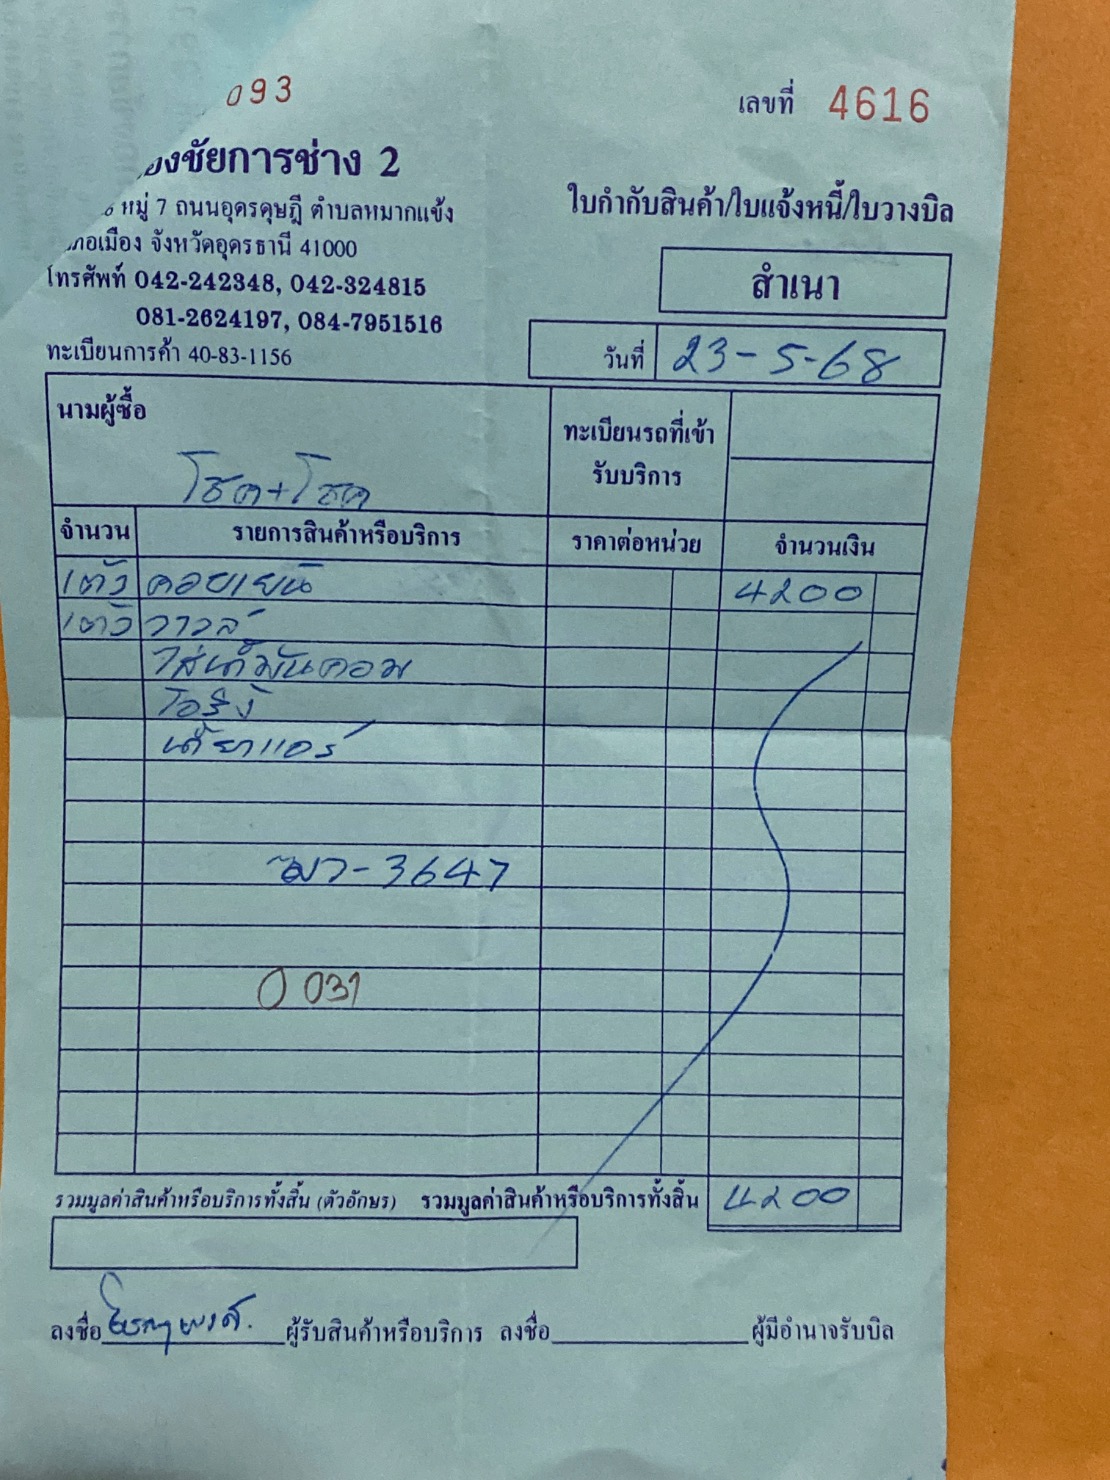 093
เลขที่ 4616
องชัยการช่าง 2
ใบกำกับสินค้า/ใบแจ้งหนี้/ใบวางบิล
หมู่ 7 ถนนอุดรดุษฎี ตำบลหมากแข้ง
เภอเมือง จังหวัดอุดรธานี 41000
สำเนา
โทรศัพท์ 042-242348, 042-324815
081-2624197, 084-7951516
วันที่ 23-5-68
ทะเบียนการค้า 40-83-1156
นามผู้ซื้อ
โชค+โชค
ทะเบียนรถที่เข้า
รับบริการ
จำนวน รายการสินค้าหรือบริการ ราคาต่อหน่วย จำนวนเงิน
1 ตัว คอยเย็น 4200
1 ตัว วาวล์
ใส่น้ำมันคอม
โอริง
น้ำยาแอร์
ฒว-3647
0 031
รวมมูลค่าสินค้าหรือบริการทั้งสิ้น (ตัวอักษร) รวมมูลค่าสินค้าหรือบริการทั้งสิ้น 4200
ลงชื่อ ผู้รับสินค้าหรือบริการ ลงชื่อ ผู้มีอำนาจรับบิล